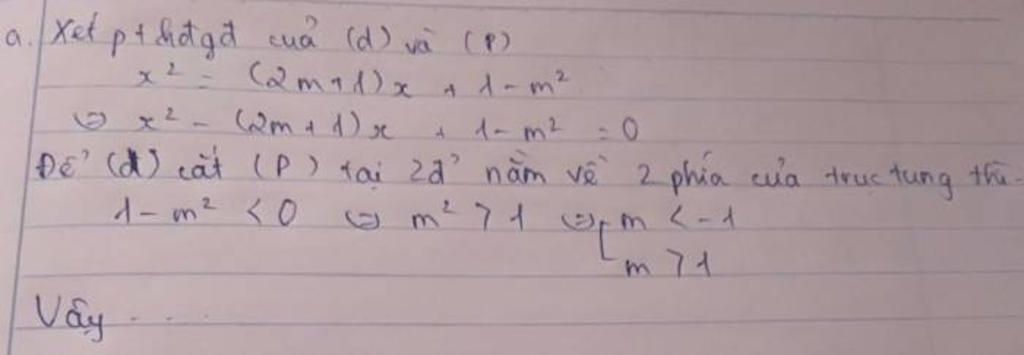 a. Xét pt hđgđ của (d) và (P)
x² = (2m+1)x + 1-m²
⇔ x² - (2m+1)x + 1-m² = 0
Để (d) cắt (P) tại 2đ' nằm về 2 phía của trục tung thì
1-m² < 0 ⇔ m² > 1 ⇔ [ m < -1
m > 1
Vậy ....